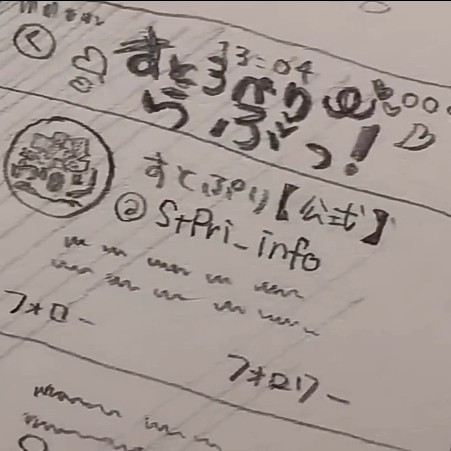 13:04
すとろべり
らぶっ!
すとぷり【公式】
@StPri_info
フォロー
フォロワー